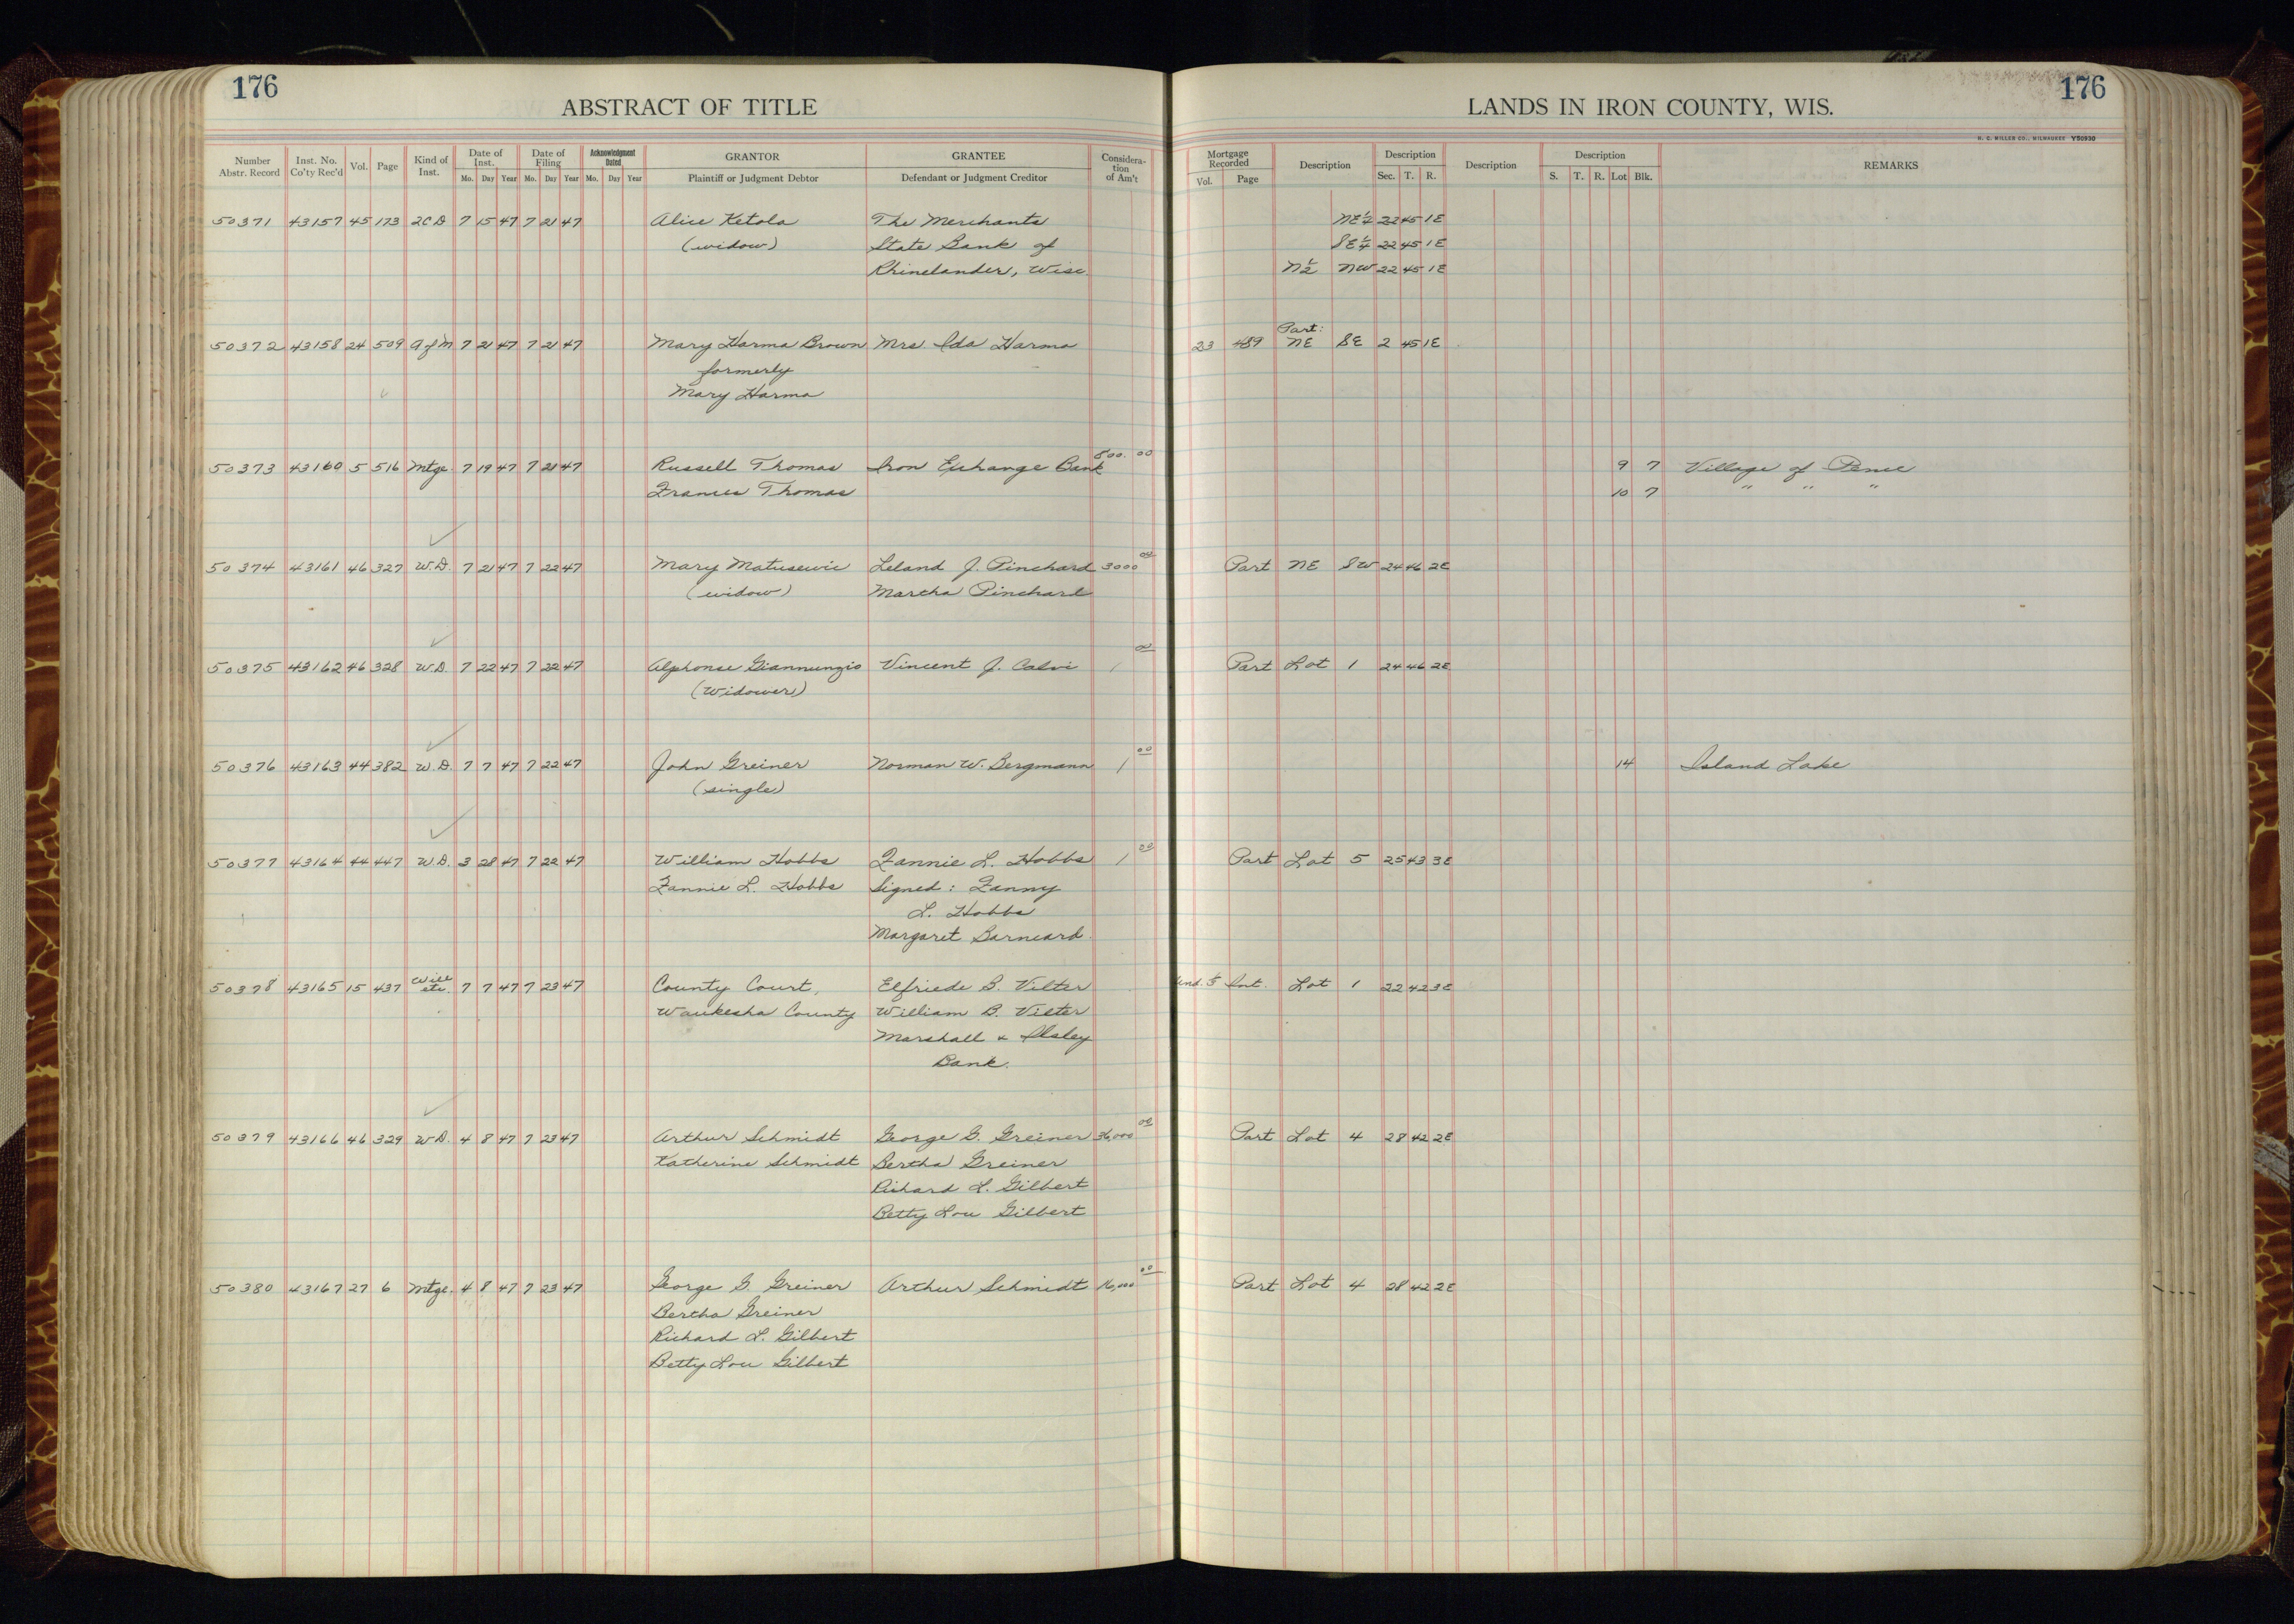 176
ABSTRACT OF TITLE
LANDS IN IRON COUNTY, WIS.
176
H. C. MILLER CO., MILWAUKEE Y50930
Number Abstr. Record Inst. No. Co'ty Rec'd Vol. Page Kind of Inst. Date of Inst. Mo. Day Year Date of Filing Mo. Day Year Acknowledgment Dated Mo. Day Year GRANTOR Plaintiff or Judgment Debtor GRANTEE Defendant or Judgment Creditor Consideration of Am't Mortgage Recorded Vol. Page Description Description Sec. T. R. Description Description S. T. R. Lot Blk. REMARKS
50371 43157 45 173 2CD 7 15 47 7 21 47 Alice Ketola The Merchants NE¼ 22 45 1E
(widow) State Bank of SE¼ 22 45 1E
Rhinelander, Wisc. N½ NW 22 45 1E
Part:
50372 43158 24 509 A of M 7 21 47 7 21 47 Mary Harma Brown Mrs Ida Harma 23 489 NE SE 2 45 1E
formerly
Mary Harma
50373 43160 5 516 Mtge. 7 19 47 7 21 47 Russell Thomas Iron Exchange Bank 800.00 9 7 Village of Pence
Frances Thomas 10 7 " " "
50374 43161 46 327 W.D. 7 21 47 7 22 47 Mary Matusewic Leland J. Pinchard 3000 00 Part NE SW 24 46 2E
(widow) Martha Pinchard
50375 43162 46 328 W.D. 7 22 47 7 22 47 Alphonse Giannunzio Vincent J. Calvi 1 00 Part Lot 1 24 46 2E
(Widower)
50376 43163 44 382 W.D. 7 7 47 7 22 47 John Greiner Norman W. Bergmann 1 00 14 Island Lake
(single)
50377 43164 44 447 W.D. 3 28 47 7 22 47 William Hobbs Fannie L. Hobbs 1 00 Part Lot 5 25 43 3E
Fannie L. Hobbs Signed: Fanny
L. Hobbs
Margaret Barneard.
50378 43165 15 437 Will etc. 7 7 47 7 23 47 County Court, Elfriede B. Vilter Int. Lot 1 22 42 3E
Waukesha County William B. Vilter
Marshall & Ilsley
Bank.
50379 43166 46 329 W.D. 4 8 47 7 23 47 Arthur Schmidt George G. Greiner 36,000 00 Part Lot 4 28 42 2E
Katherine Schmidt Bertha Greiner
Richard L. Gilbert
Betty Lou Gilbert
50380 43167 27 6 Mtge. 4 8 47 7 23 47 George G. Greiner Arthur Schmidt 16,000 00 Part Lot 4 28 42 2E
Bertha Greiner
Richard L. Gilbert
Betty Lou Gilbert